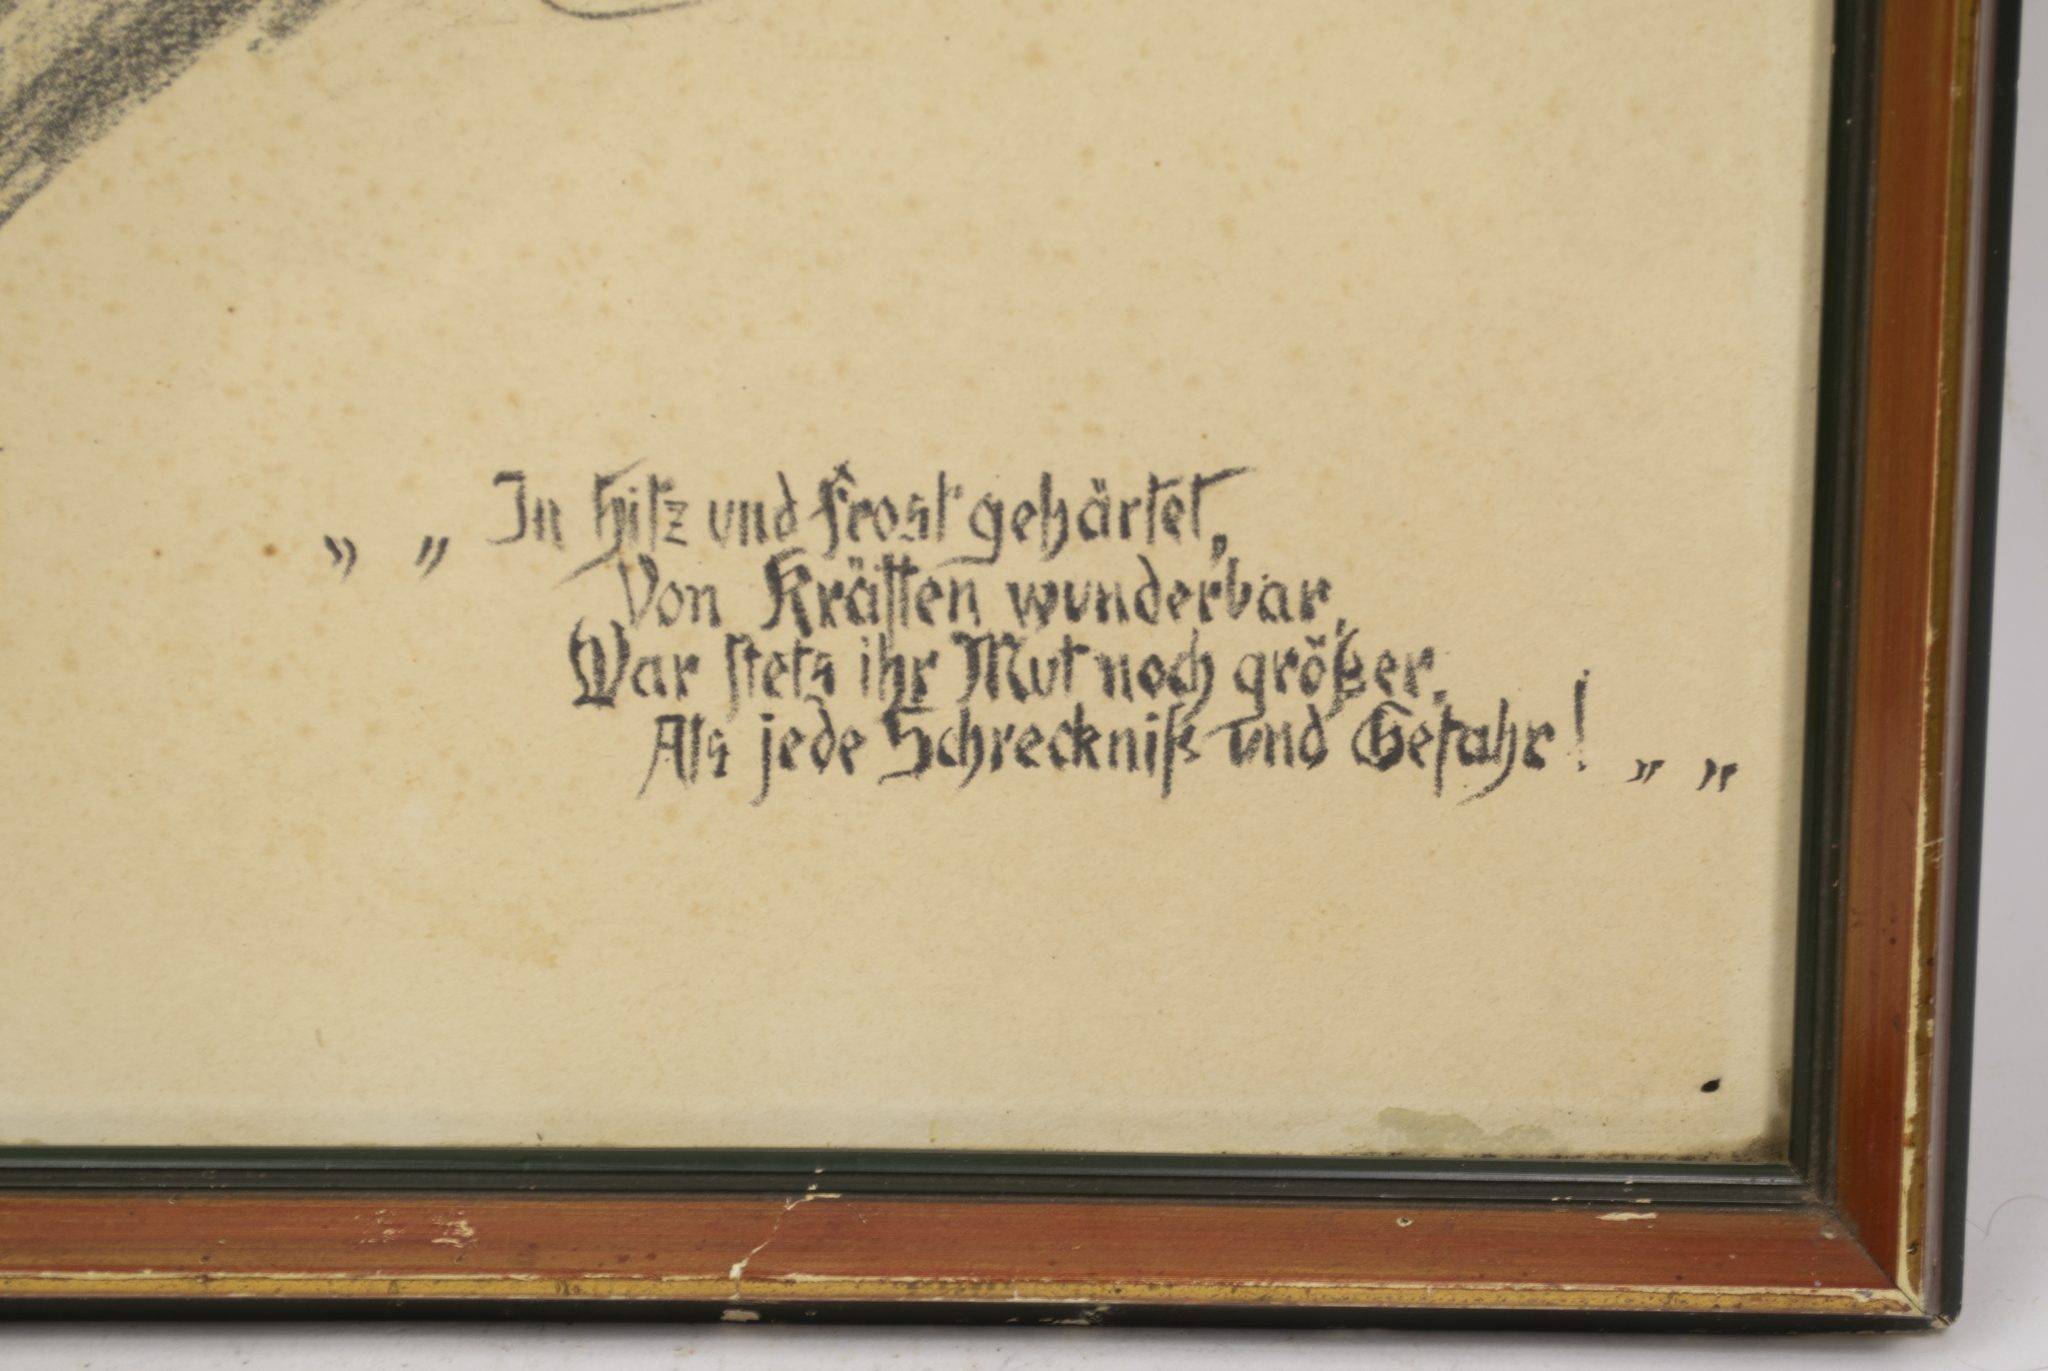 „ „ In Hitz und Frost gehärtet,
Von Kräften wunderbar,
War stets ihr Mut noch größer,
Als jede Schreckniß und Gefahr! „ „